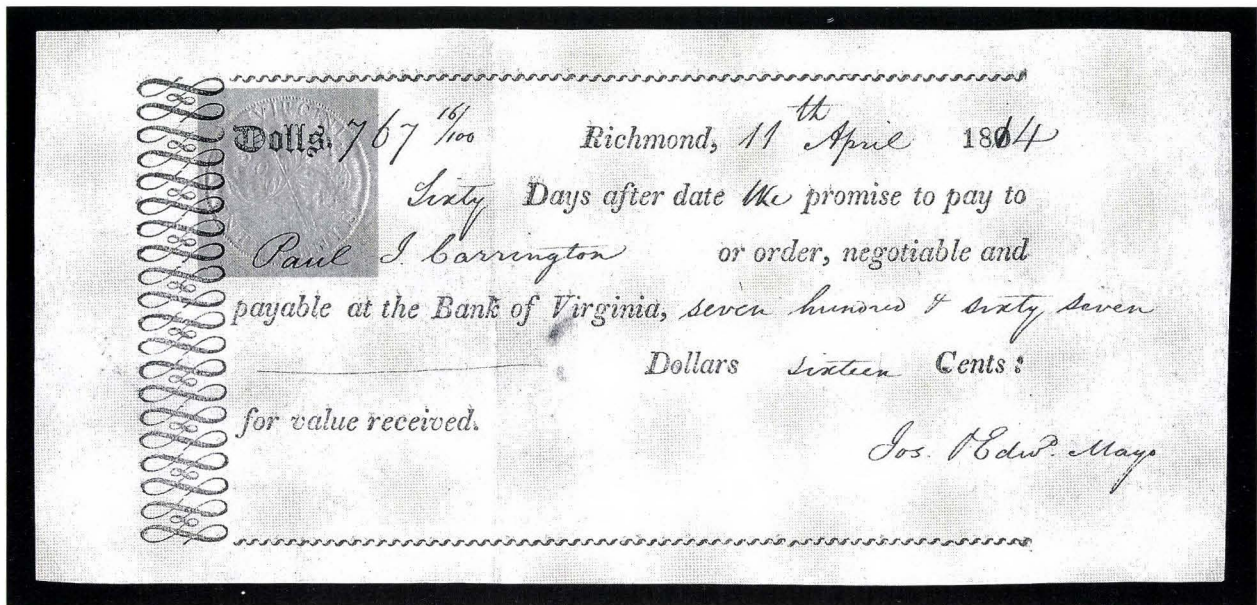 Dolls. 767 16/100 Richmond, 11th April 1814
Sixty Days after date We promise to pay to
Paul I Carrington or order, negotiable and
payable at the Bank of Virginia, seven hundred & sixty seven
Dollars sixteen Cents:
for value received.
Jos. & Edwd. Mayo